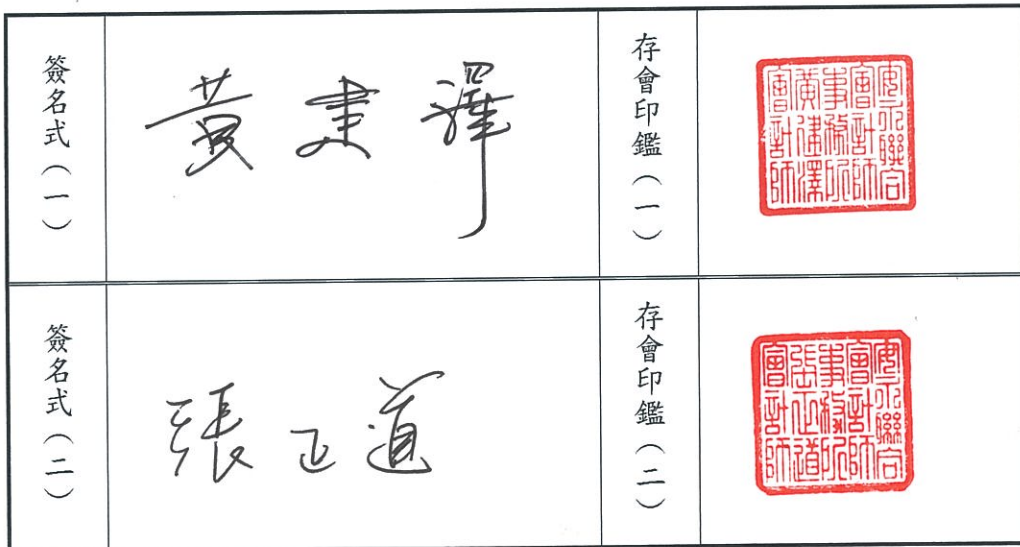 簽名式（一）
黃建澤
存會印鑑（一）
安永聯合
會計師
事務所
黃建澤
會計師
簽名式（二）
張正道
存會印鑑（二）
安永聯合
會計師
事務所
張正道
會計師